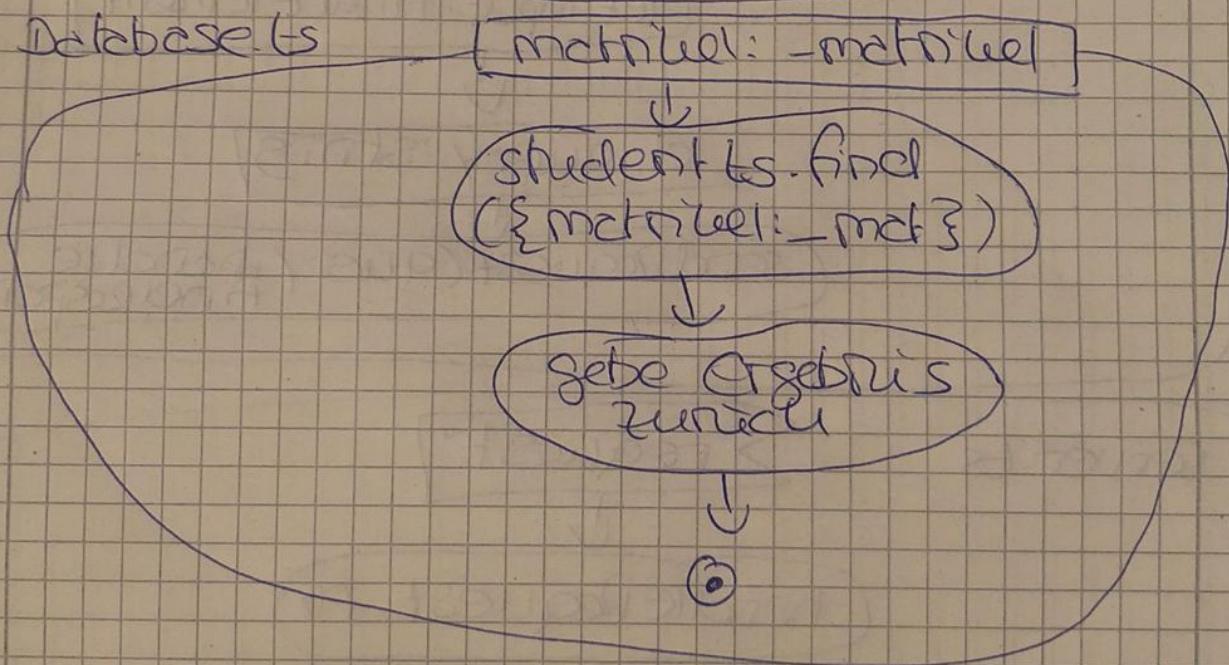 Database.ts
matrikel: _matrikel
students.find
({matrikel:_mat})
gebe Ergebnis
zurück